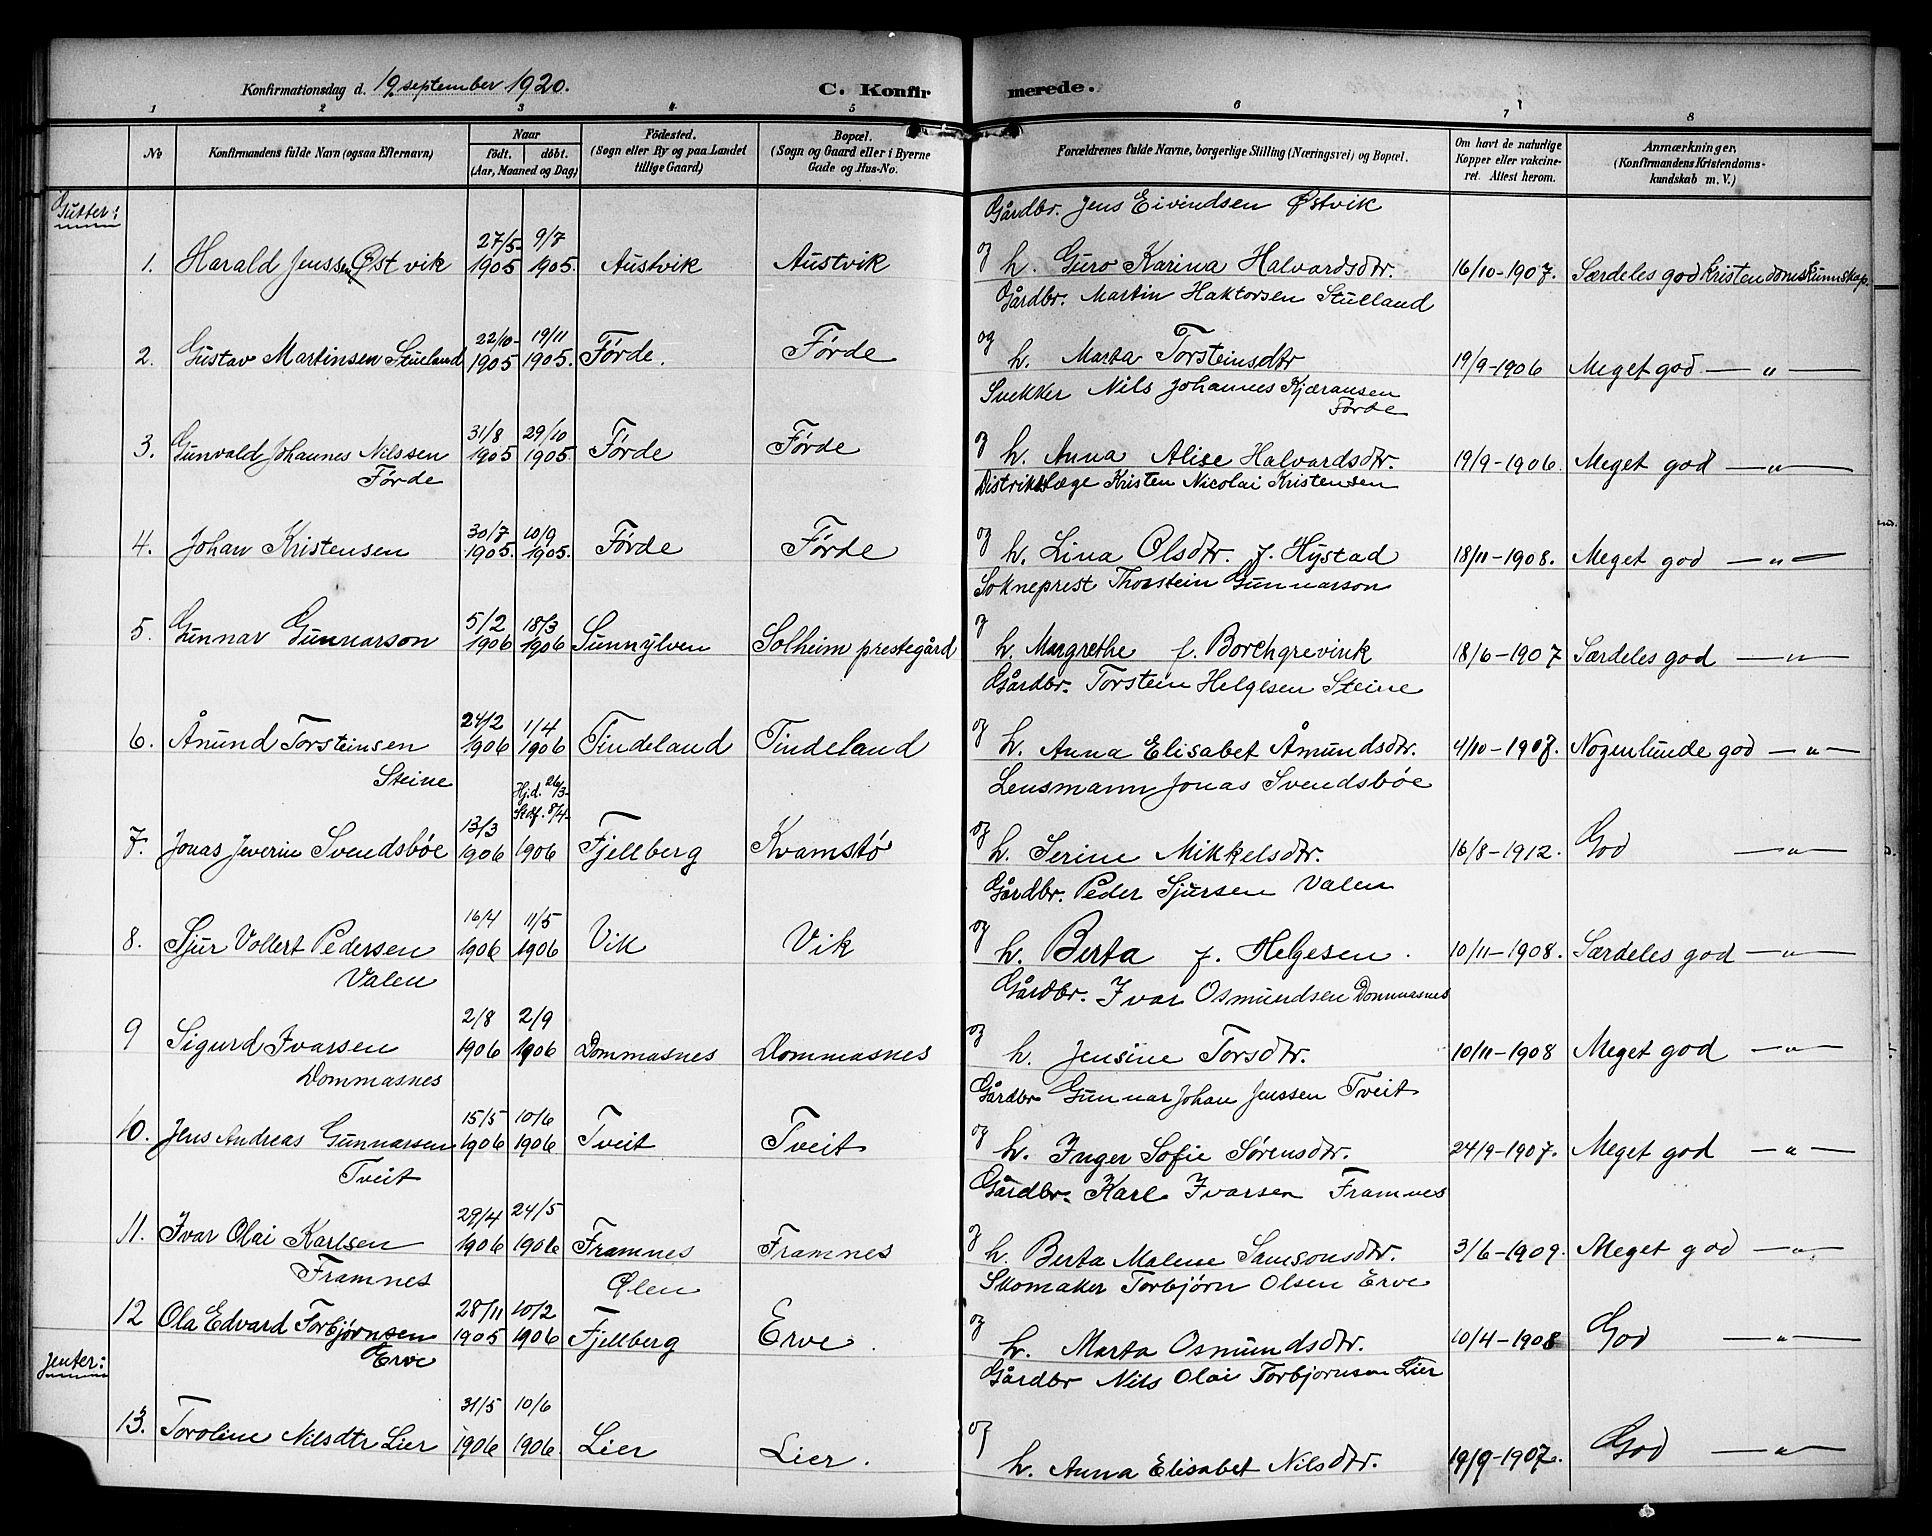 Konfirmationsdag d. 19 september 1920. C. Konfirmerede.
1 2 3 4 5 6 7 8
No Konfirmandens fulde Navn (ogsaa Efternavn) Naar födt. döbt. (Aar, Maaned og Dag) Födested. (Sogn eller By og paa Landet tillige Gaard) Bopæl. (Sogn og Gaard eller i Byerne Gade og Hus-No. Forældrenes fulde Navne, borgerlige Stilling (Næringsvei) og Bopæl. Om havt de naturlige Kopper eller vakcineret. Attest herom. Anmærkninger, (Konfirmandens Kristendomskundskab m. V.)
Gutter:
Gårdbr. Jens Eivindsen Østvik
27/5- 9/7 og
1. Harald Jenssen Østvik 1905 1905. Austvik Austvik h. Guro Karina Halvardsdtr. 16/10-1907. Særdeles god Kristendomskunnskap.
Gårdbr. Martin Haktorsen Stulland
22/10- 19/11 og
2. Gustav Martinsen Stueland 1905 1905. Førde. Førde h. Marta Torsteinsdtr 19/9-1906 Meget god — " —
Snekker Nils Johannes Kjæransen
Førde
31/8 29/10 og
3. Gunvald Johannes Nilssen 1905 1905. Førde Førde h. Anna Alise Halvardsdtr. 19/9-1906. Meget god — " —
Førde
Distriktslæge Kristen Nicolai Kristensen
30/7 10/9 og
4. Johan Kristensen 1905. 1905. Førde Førde h. Lina Olsdtr. f. Hystad 18/11-1908. Meget god — " —
Sokneprest Thorstein Gunnarson
5/2 18/3 og
5. Gunnar Gunnarson 1906 1906 Sunnylven Solheim prestegård h. Margrethe f. Borchgrevink 18/6-1907 Særdeles god — " —
Gårdbr. Torstein Helgesen Steine
24/2 1/4 og
6. Åmund Torsteinsen 1906 1906 Tindeland Tindeland h. Anna Elisabet Åmundsdtr. 4/10-1907. Nogenlunde god — " —
Steine
Hjd. 26/3- Lensmann Jonas Svendsbøe
Stdf. 8/4-
13/3 og
7. Jonas Severin Svendsbøe 1906 1906 Fjellberg Kvamstø h. Serine Mikkelsdtr. 16/8-1912. God — " —
Gårdbr. Peder Sjursen Valen
16/4 11/5 og
8. Sjur Vollert Pedersen 1906 1906 Vik Vik h. Berta f. Helgesen. 10/11-1908. Særdeles god — " —
Valen
Gårdbr. Ivar Osmundsen Dommasnes
2/8 2/9 og
9 Sigurd Ivarsen 1906 1906 Dommasnes Dommasnes h. Jensine Torsdtr. 10/11-1908 Meget god — " —
Dommasnes
Gårdbr Gunnar Johan Jenssen Tveit
15/5 10/6 og
10. Jens Andreas Gunnarsen 1906 1906 Tveit Tveit h. Inger Sofie Sørensdtr. 24/9-1907. Meget god — " —
Tveit
Gårdbr. Karl Ivarsen Framnes
29/4 24/5 og
11. Ivar Olai Karlsen 1906 1906 Framnes Framnes h. Berta Malene Samsonsdtr. 3/6-1909. Meget god — " —
Framnes Ølen
Skomaker Torbjørn Olsen Erve
28/11 10/2 og
12 Ola Edvard Torbjørnsen 1905 1906 Fjellberg Erve. h. Marta Osmundsdtr. 10/4-1908 God — " —
Erve
Jenter:
Gårdbr Nils Olai Torbjørnsen Lier
31/5 10/6 og
13. Toroline Nilsdtr Lier 1906 1906. Lier Lier. h. Anna Elisabet Nilsdtr. 19/9-1907. God — " —